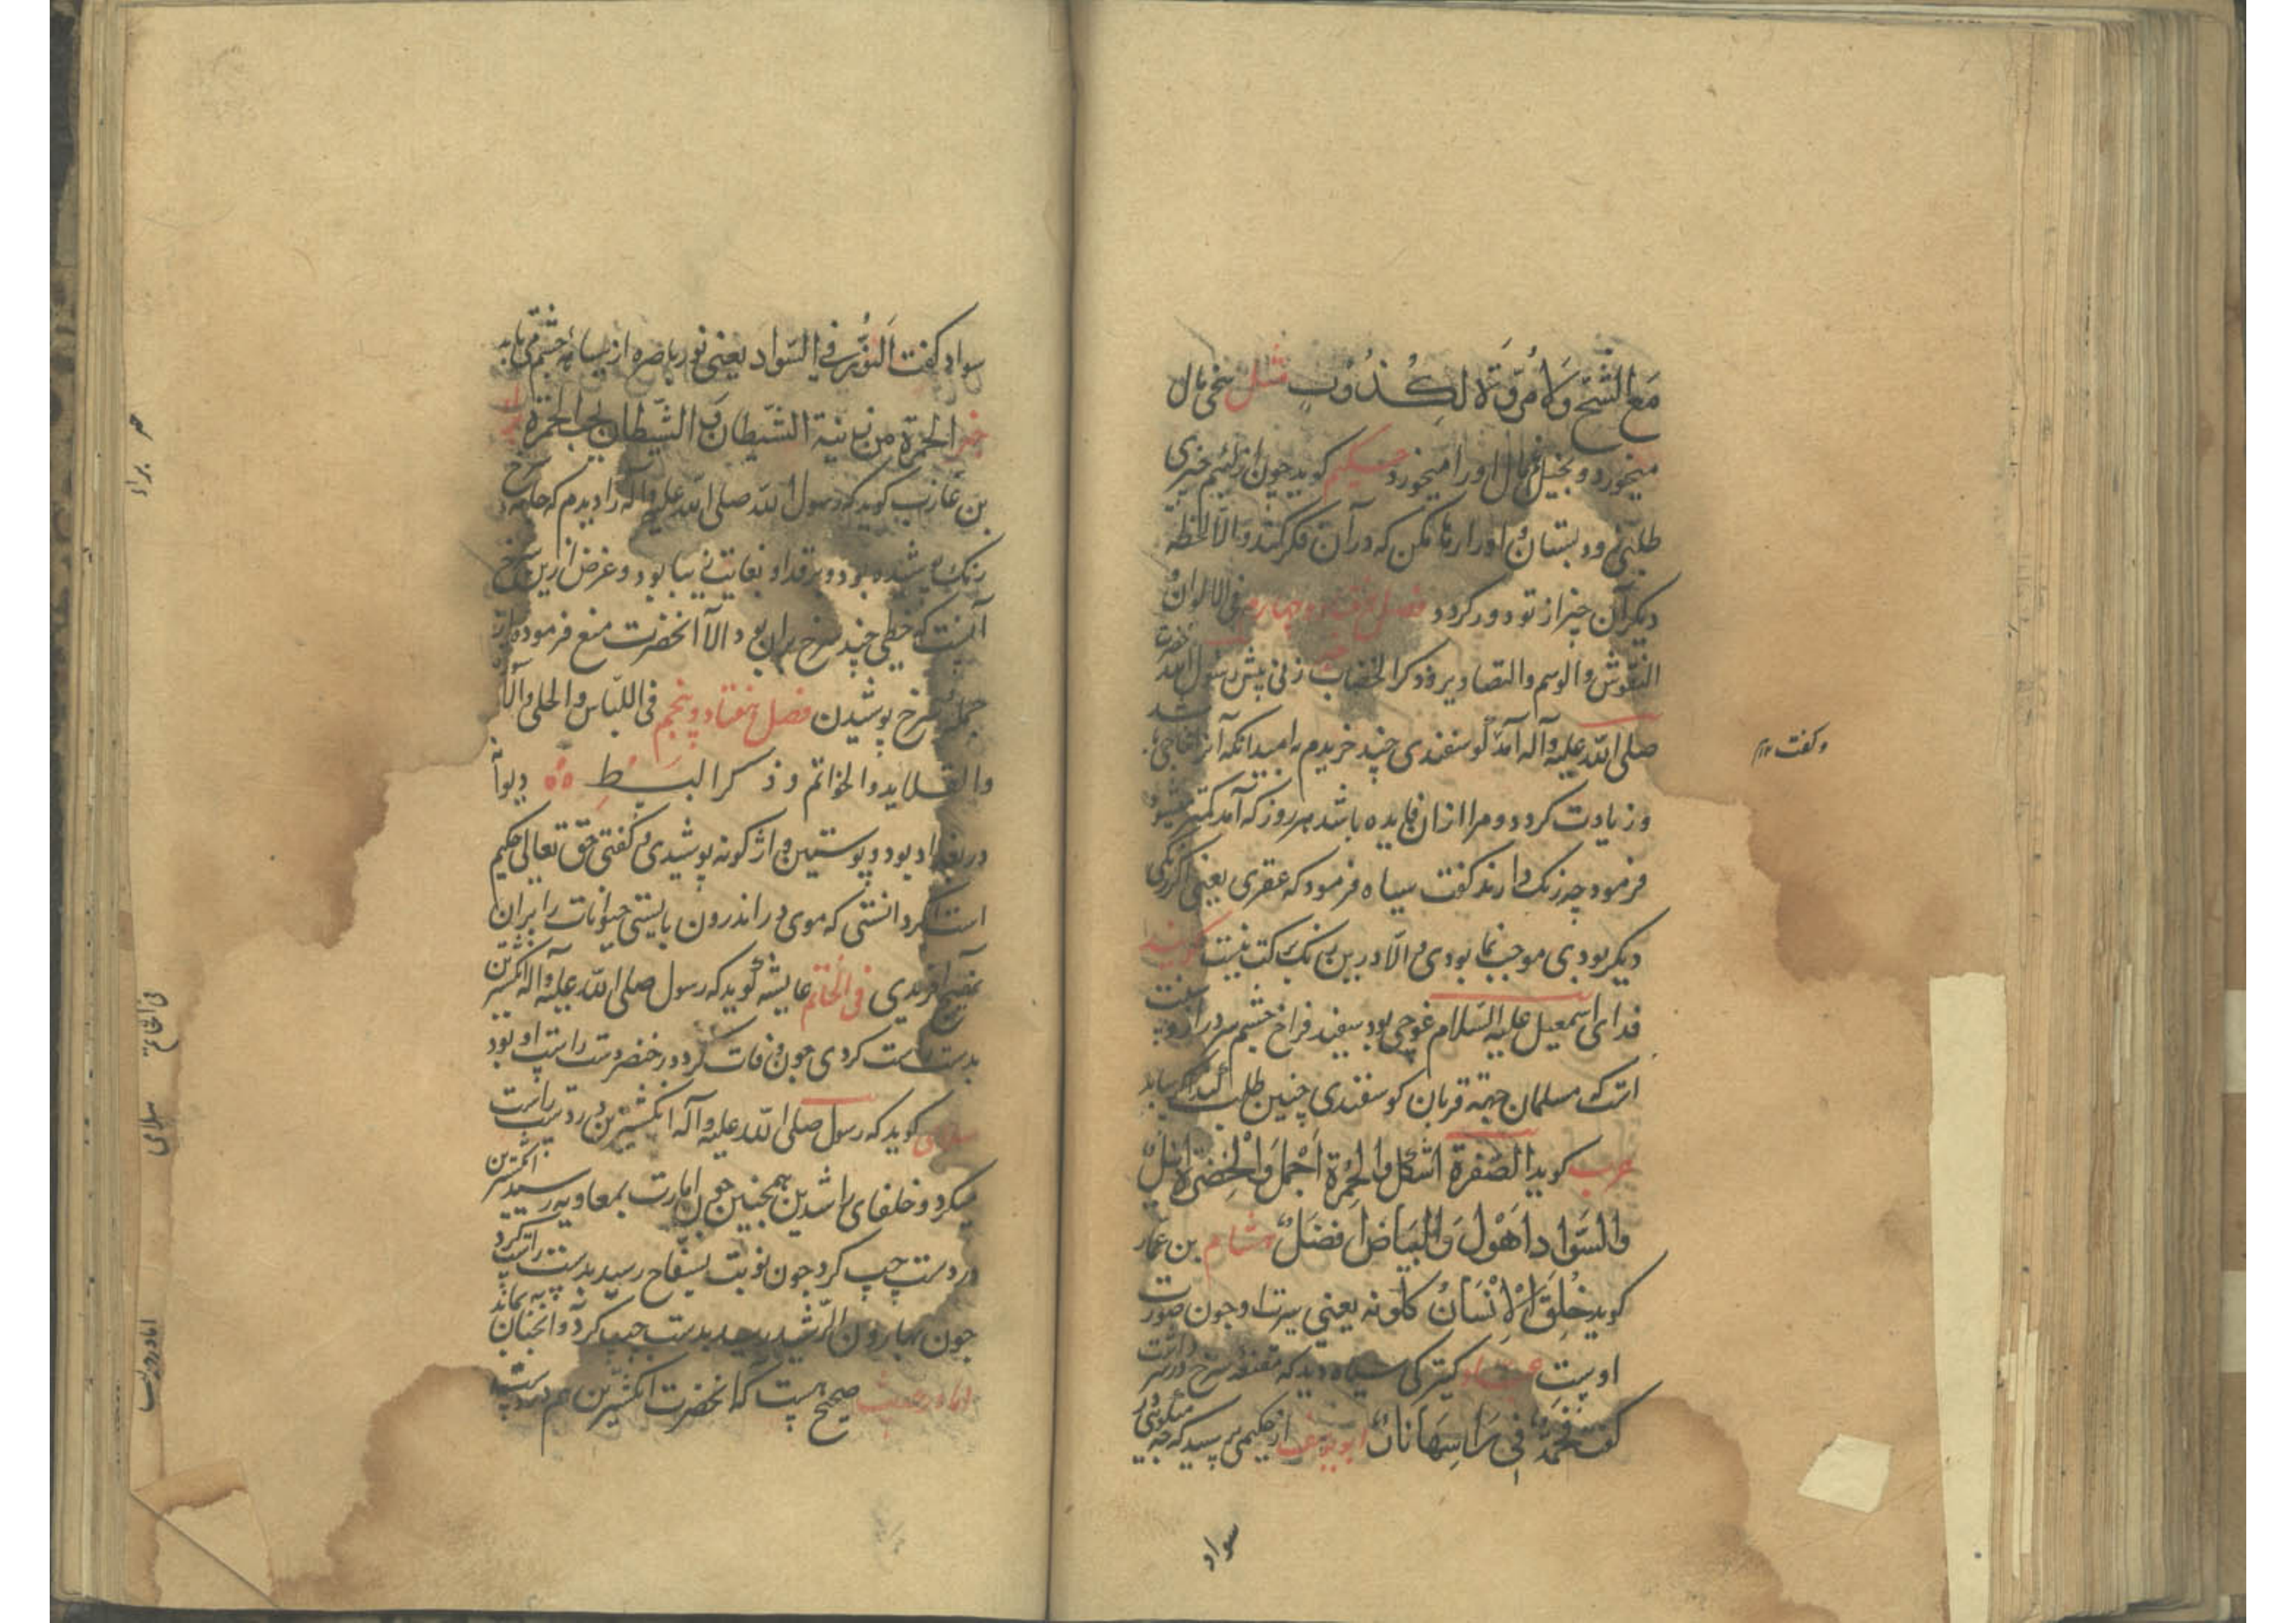 مَعَ الشُّحِّ وَلَا مُرُوَّةَ لِكَذُوبٍ مثل سخی مال
میخورد و بخیل را مال او را میخورد حکیم کوید چون از لئیم چیزی
طلبی و بستان و او را رها مکن که در آن فکر کند و الا لحظه
دیکر آن چیز از تو دور کردد فصل هفتاد و چهارم فی الالوان و
النقوش والوسم والتصاویر و ذکر الخضاب زنی پیش رسول الله
صلی الله علیه وآله آمد کوسفندی چند خریدم بامید انکه
و زیادت کردد و مرا ازان فایده باشد هر روز که آمد کمتر
فرمود چه رنک دارند کفت سیاه فرمود که عفری یعنی اکر رنکی
دیکر بودی موجب نما بودی و الا درین رنک برکت نیست کویند
فدای اسمعیل علیه السلام غوچی بود سفید فراخ چشم سر دراز و
است که مسلمان جهة قربان کوسفندی چنین طلب کند اکر بیابد
عرب کوید الصفرة اشکل والحمرة اجمل والخضرة انبل
والسواد اهول والبیاض افضل هشام بن عمار
کوید خلق الانسان کلونه یعنی سیرت او چون صورت
اوست کنیزکی سیاه دید که مقنعه سرخ در سر داشت
کفت فحمة فی راسها نار ابو یوسف از حکیمی پرسید که چه میکویی در
و کفت
سواد
سواد کفت النور فی السواد یعنی نور باصره از سیاهه چشم می یابد
خبر الحمرة من زینة الشیطان و الشیطان یحب الحمرة
بن عازب کوید که رسول الله صلی الله علیه وآله را دیدم که حله سرخ
رنک پوشیده بود و بر قد او بغایت زیبا بود و غرض ازین سرخ
آنست که خطی چند سرخ بران بود والا آنحضرت منع فرموده از
جمله سرخ پوشیدن فصل هفتاد و پنجم فی اللباس والحلی والا
والقلاید والخواتم و ذکر البسط دیوانه
در بغداد بود و پوستین واژکونه پوشیدی و کفتی حق تعالی حکیم
است اکر دانستی که موی در اندرون بایستی حیوانات را بران
آفریدی فی الخاتم عایشه کوید که رسول صلی الله علیه وآله انکشترین
بدست راست کردی چون وفات کرد در خنصر دست راست او بود
سلامی کوید که رسول صلی الله علیه وآله انکشترین در دست راست
میکرد و خلفای راشدین همچنین چون امارت بمعاویه رسید انکشترین
در دست چپ کرد چون نوبت بسفاح رسید بدست راست کرد
چون بهارون الرشید رسید بدست چپ کرد و آنچنان بماند
اما درست صحیح است که آنحضرت انکشترین هم
براء
فی الخاتم
سلامی